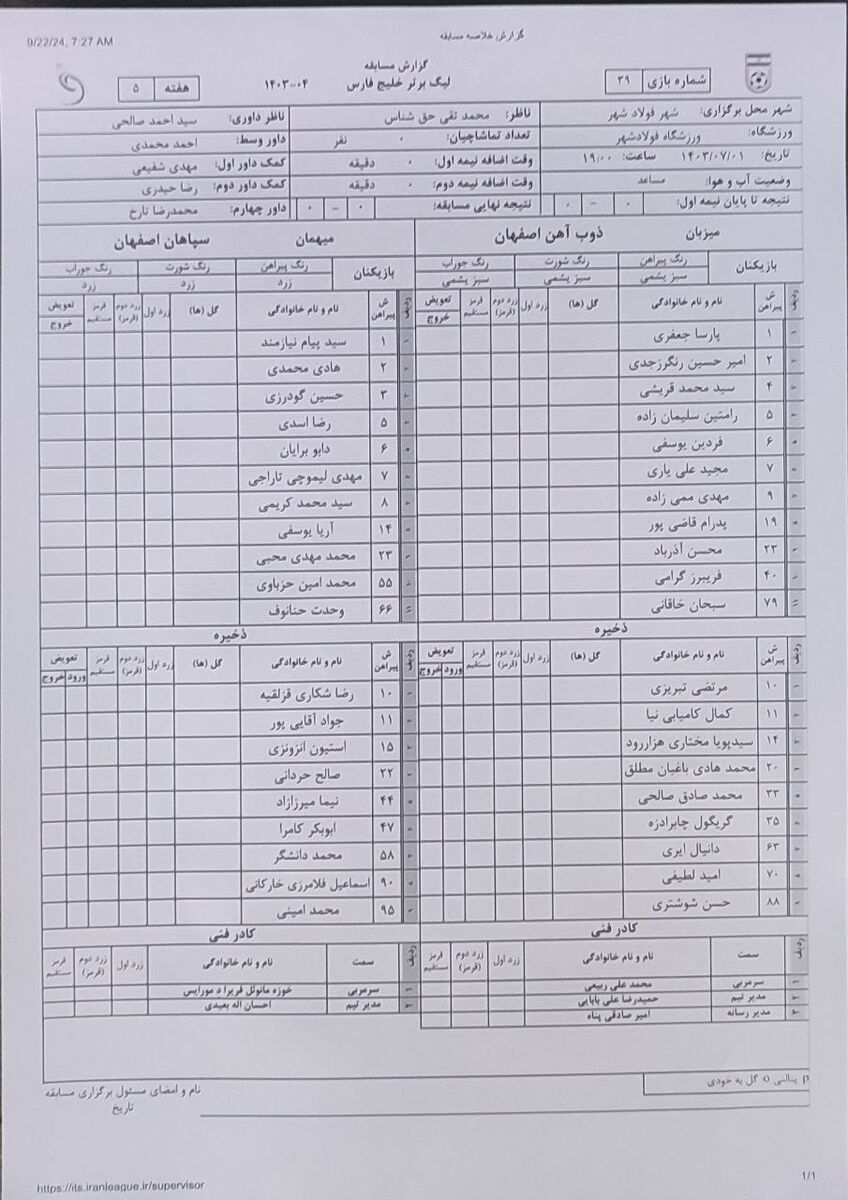 9/22/24, 7:27 AM
گزارش خلاصه مسابقه
گزارش مسابقه
لیگ برتر خلیج فارس
۱۴۰۳-۰۴
شماره بازی ۳۹
هفته ۵
شهر محل برگزاری: شهر فولاد شهر
ناظر: محمد تقی حق شناس
ناظر داوری: سید احمد صالحی
ورزشگاه: ورزشگاه فولادشهر
تعداد تماشاچیان: ۰ نفر
داور وسط: احمد محمدی
تاریخ: ۱۴۰۳/۰۷/۰۱ ساعت: ۱۹:۰۰
وقت اضافه نیمه اول: ۰ دقیقه
کمک داور اول: مهدی شفیعی
وضعیت آب و هوا: مساعد
وقت اضافه نیمه دوم: ۰ دقیقه
کمک داور دوم: رضا حیدری
نتیجه تا پایان نیمه اول: ۰ - ۰
نتیجه نهایی مسابقه: ۰ - ۰
داور چهارم: محمدرضا تارخ
میزبان ذوب آهن اصفهان
بازیکنان رنگ پیراهن رنگ شورت رنگ جوراب
سبز یشمی سبز یشمی سبز یشمی
ردیف ش پیراهن نام و نام خانوادگی گل (ها) زرد اول زرد دوم (قرمز) قرمز مستقیم تعویض خروج
۱ پارسا جعفری
۲ امیر حسین رنگرزجدی
۴ سید محمد قریشی
۵ رامتین سلیمان زاده
۶ فردین یوسفی
۷ مجید علی یاری
۹ مهدی ممی زاده
۱۹ پدرام قاضی پور
۲۳ محسن آذرباد
۴۰ فریبرز گرامی
۷۹ سبحان خاقانی
ذخیره
ردیف ش پیراهن نام و نام خانوادگی گل (ها) زرد اول زرد دوم (قرمز) قرمز مستقیم تعویض ورود خروج
۱۰ مرتضی تبریزی
۱۱ کمال کامیابی نیا
۱۴ سیدپویا مختاری هزاررود
۲۰ محمد هادی باغبان مطلق
۳۳ محمد صادق صالحی
۳۵ گریگول چابرادزه
۶۳ دانیال ایری
۷۰ امید لطیفی
۸۸ حسن شوشتری
کادر فنی
ردیف سمت نام و نام خانوادگی زرد اول زرد دوم (قرمز) قرمز مستقیم
۱ سرمربی محمد علی ربیعی
۲ مدیر تیم حمیدرضا علی بابایی
۳ مدیر رسانه امیر صادقی پناه
میهمان سپاهان اصفهان
بازیکنان رنگ پیراهن رنگ شورت رنگ جوراب
زرد زرد زرد
ردیف ش پیراهن نام و نام خانوادگی گل (ها) زرد اول زرد دوم (قرمز) قرمز مستقیم تعویض خروج
۱ سید پیام نیازمند
۲ هادی محمدی
۳ حسین گودرزی
۵ رضا اسدی
۶ دابو برایان
۷ مهدی لیموچی تاراجی
۸ سید محمد کریمی
۱۴ آریا یوسفی
۲۳ محمد مهدی محبی
۵۵ محمد امین حزباوی
۶۶ وحدت حنانوف
ذخیره
ردیف ش پیراهن نام و نام خانوادگی گل (ها) زرد اول زرد دوم (قرمز) قرمز مستقیم تعویض ورود خروج
۱۰ رضا شکاری قزلقیه
۱۱ جواد آقایی پور
۱۵ استیون انزونزی
۲۲ صالح حردانی
۴۴ نیما میرزازاد
۴۷ ابوبکر کامرا
۵۸ محمد دانشگر
۹۰ اسماعیل قلامرزی خارکانی
۹۵ محمد امینی
کادر فنی
ردیف سمت نام و نام خانوادگی زرد اول زرد دوم (قرمز) قرمز مستقیم
۱ سرمربی خوزه مانوئل فریرا د مورایس
۲ مدیر تیم احسان اله بعیدی
p پنالتی o گل به خودی
نام و امضای مسئول برگزاری مسابقه
تاریخ
https://its.iranleague.ir/supervisor
1/1